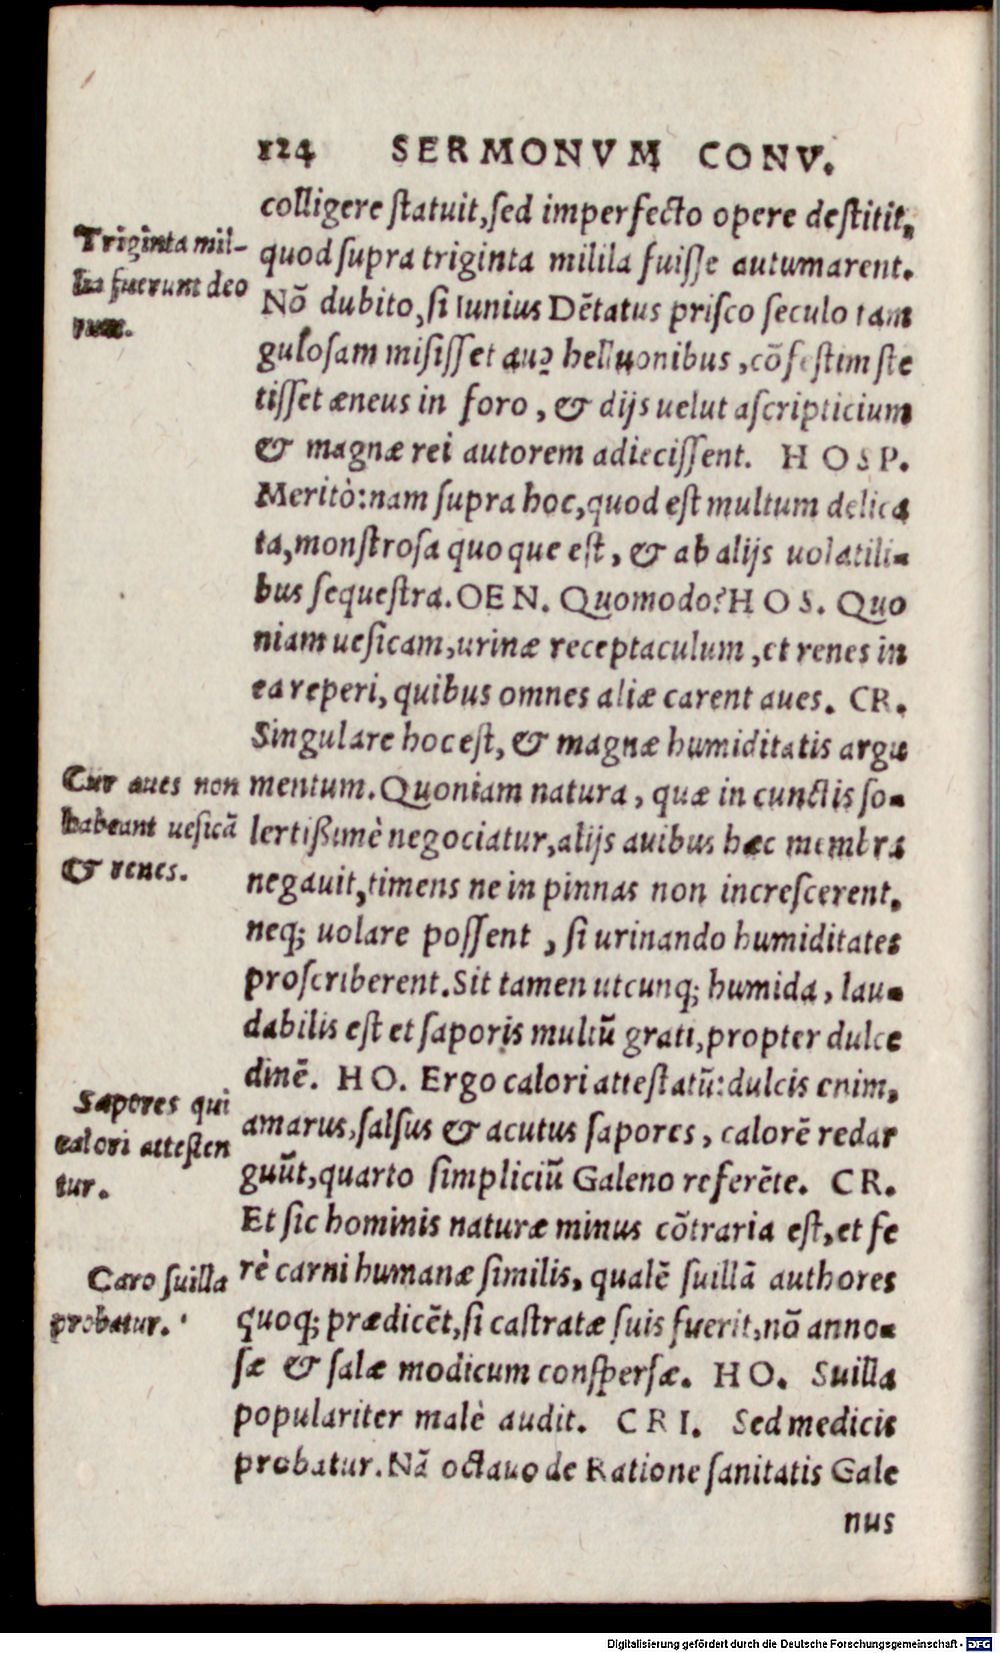 124 SERMONVM CONV.
colligere ſtatuit,ſed imperfecto opere deſtitit,
quod ſupra triginta milila fuiſſe autumarent.
Nõ dubito, ſi Iunius Dẽtatus priſco ſeculo tam
guloſam miſiſſet helluonibus, cõfeſtim ſte
tiſſet æneus in foro, & dijs uelut aſcripticium
& magnæ rei autorem adieciſſent. HOSP.
Meritò: nam ſupra hoc, quod eſt multum delica
ta, monſtroſa quoque eſt, & ab alijs uolatili-
bus ſequeſtra. OEN. Quomodo? HOS. Quo
niam ueſicam, urinæ receptaculum, et renes in
ea reperi, quibus omnes aliæ carent aues. CR.
Singulare hoc eſt, & magnæ humiditatis argu
mentum. Quoniam natura, quæ in cunctis ſo-
lertißimè negociatur, alijs auibus hæc membra
negauit, timens ne in pinnas non increſcerent,
neq; uolare poſſent, ſi urinando humiditates
proſcriberent. Sit tamen utcunq; humida, lau-
dabilis eſt et ſaporis multũ grati, propter dulce
dinẽ. HO. Ergo calori atteſtatũ: dulcis enim,
amarus, ſalſus & acutus ſapores, calorẽ redar
guũt, quarto ſimpliciũ Galeno referẽte. CR.
Et ſic hominis naturæ minus cõtraria eſt, et fe
rè carni humanæ ſimilis, qualẽ ſuillã authores
quoq; prædicẽt, ſi caſtratæ ſuis fuerit, nõ anno-
ſæ & ſalæ modicum conſperſæ. HO. Suilla
populariter malè audit. CRI. Sed medicis
probatur. Nã octauo de Ratione ſanitatis Gale
nus
Triginta mil-
lia fuerunt deo
rum.
Cur aues non
habeant ueſicã
& renes.
Sapores qui
calori atteſten
tur.
Caro ſuilla
probatur.
Digitalisierung gefördert durch die Deutsche Forschungsgemeinschaft - DFG